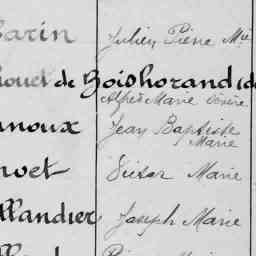 Carin Julien Pierre Mie
houet de Boishorand (de
Alfred Marie Désiré
noux Jean Baptiste
Marie
voet Victor Marie
llandier Joseph Marie